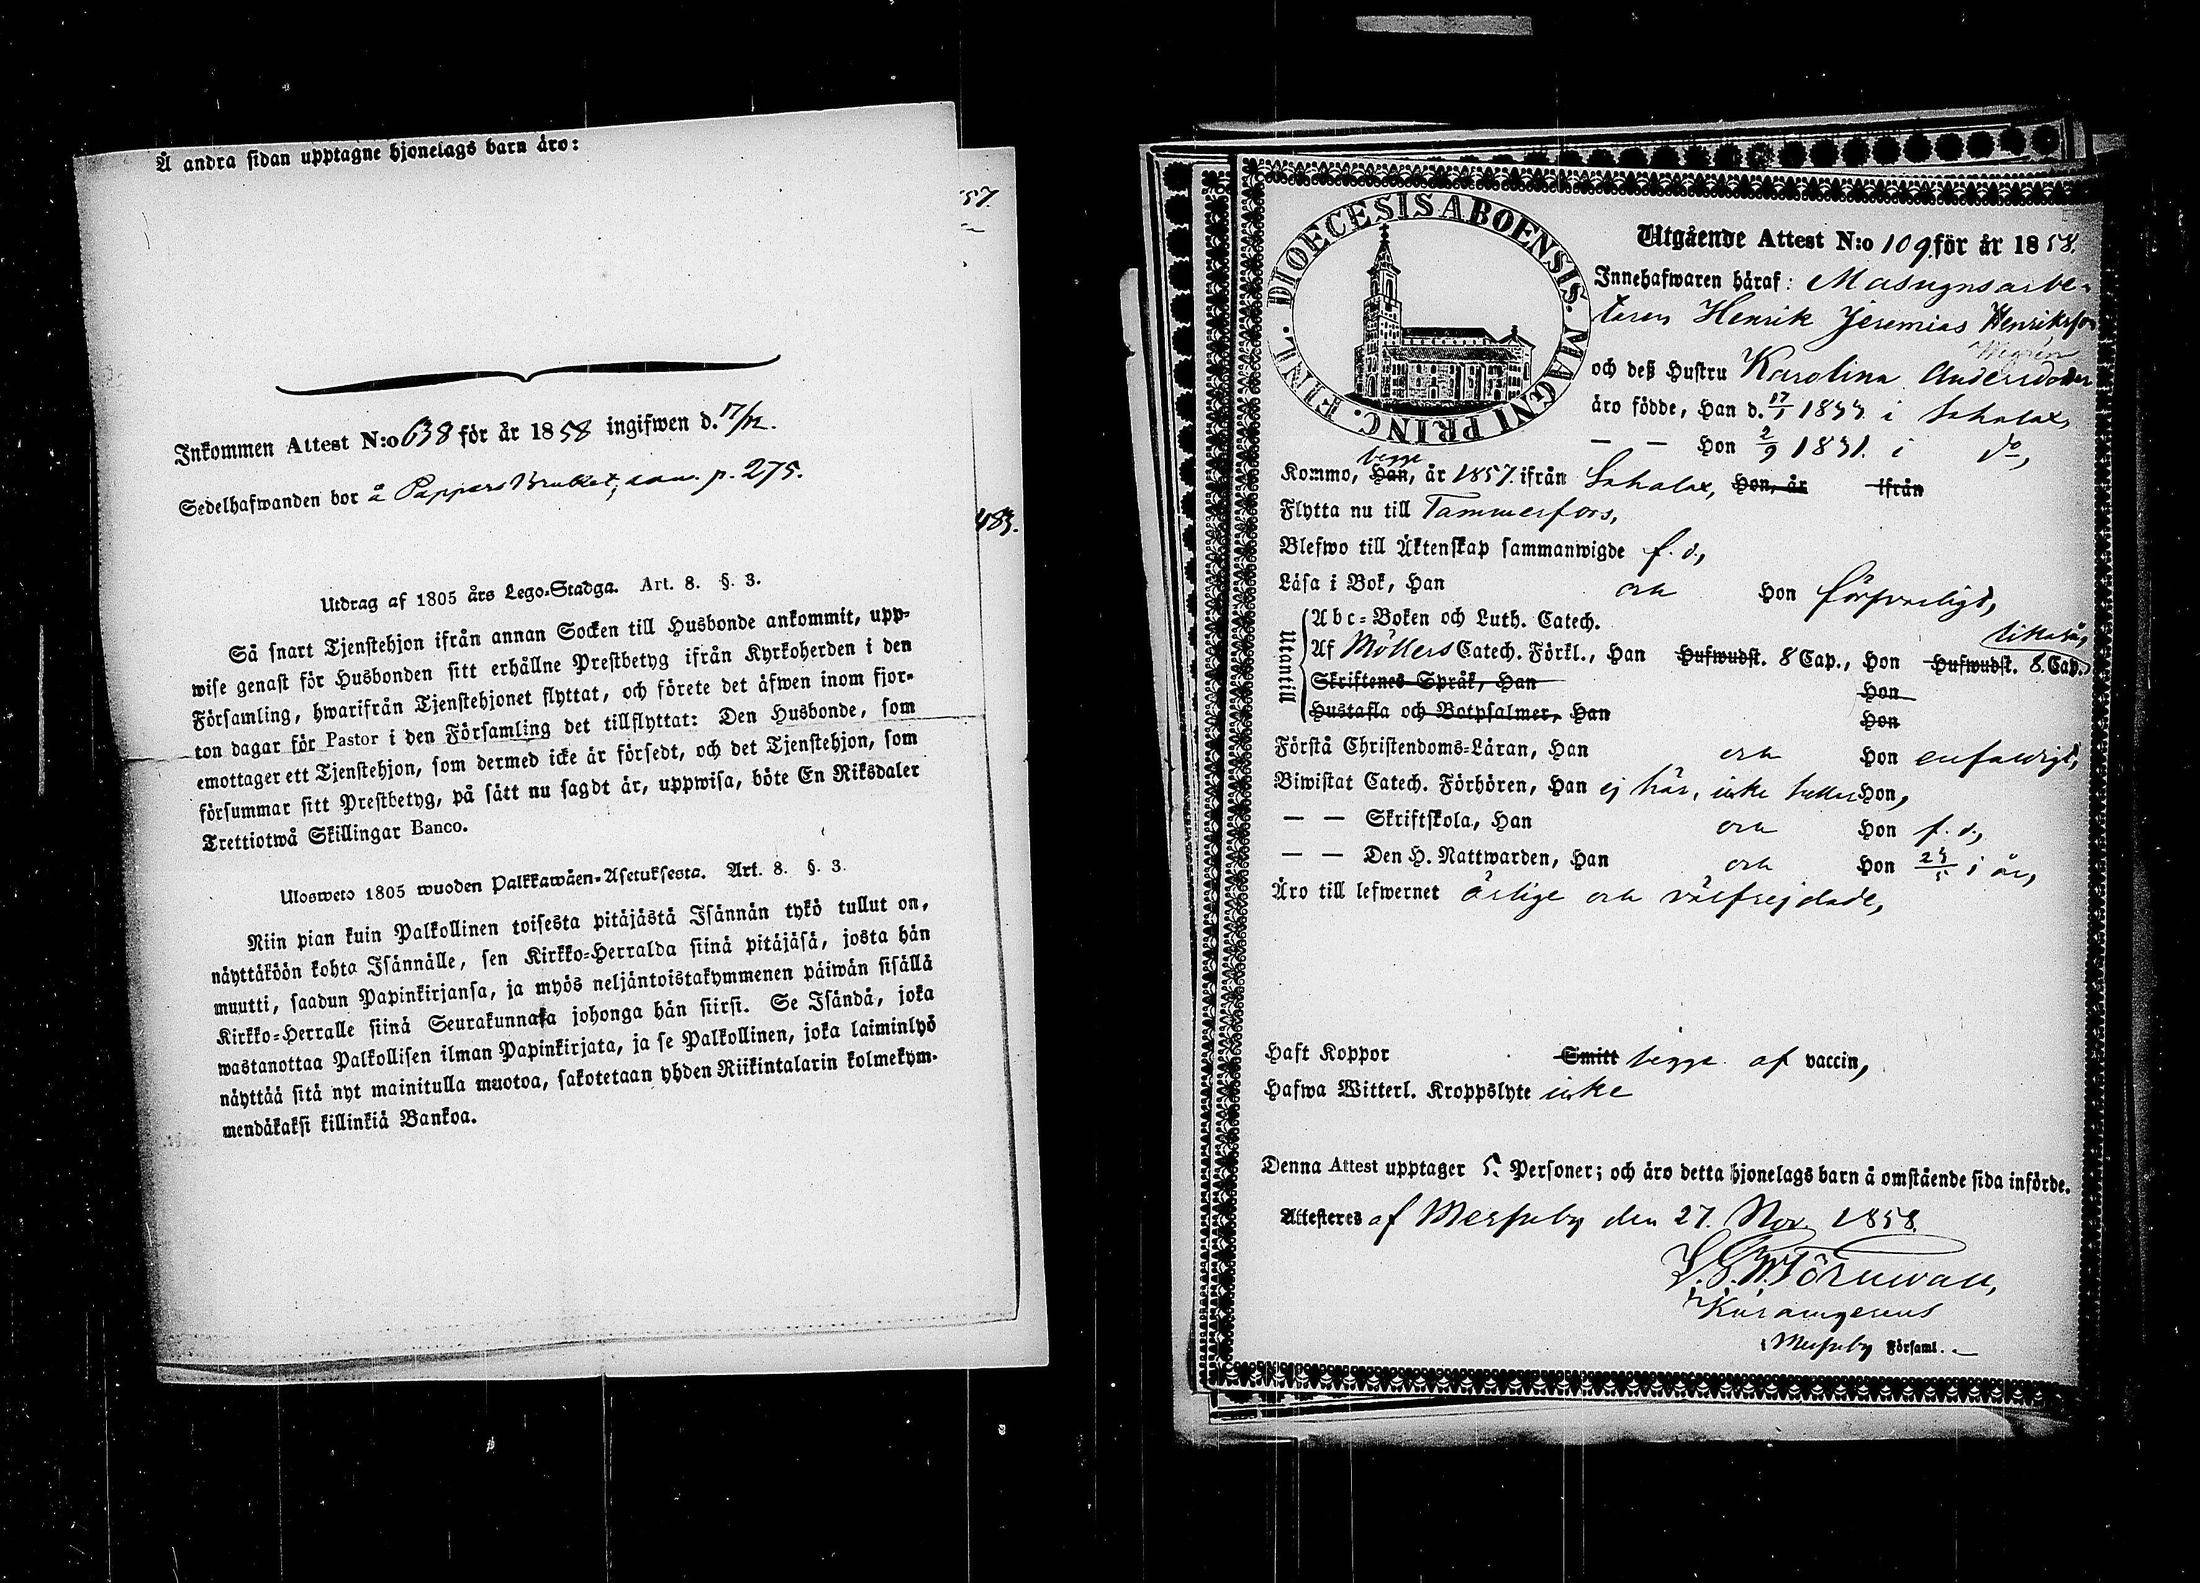 Å andra sidan upptagne hjonelags barn äro:
57.
Inkommen Attest N:o 638 för år 1858 ingifwen d. 17/12.
Sedelhafwanden bor å Pappers Bruket, p. 275.
483.
Utdrag af 1805 års Lego-Stadga. Art. 8. §. 3.
Så snart Tjenstehjon ifrån annan Socken till Husbonde ankommit, upp-
wise genast för Husbonden sitt erhållne Prestbetyg ifrån Kyrkoherden i den
Församling, hwarifrån Tjenstehjonet flyttat, och förete det äfwen inom fjor-
ton dagar för Pastor i den Församling det tillflyttat: Den Husbonde, som
emottager ett Tjenstehjon, som dermed icke är försedt, och det Tjenstehjon, som
försummar sitt Prestbetyg, på sätt nu sagdt är, uppwisa, böte En Riksdaler
Trettiotwå Skillingar Banco.
Ulosweto 1805 wuoden Palkkawäen-Asetuksesta. Art. 8. §. 3.
Niin pian kuin Palkollinen toisesta pitäjästä Isännän tykö tullut on,
näyttäköön kohta Isännälle, sen Kirkko-Herralda siinä pitäjäsä, josta hän
muutti, saadun Papinkirjansa, ja myös neljäntoistakymmenen päiwän sisällä
Kirkko-Herralle siinä Seurakunnasa johonga hän siirsi. Se Isändä, joka
wastanottaa Palkollisen ilman Papinkirjata, ja se Palkollinen, joka laiminlyö
näyttää sitä nyt mainitulla muotoa, sakotetaan yhden Riikintalarin kolmekym-
mendäkaksi killinkiä Bankoa.
DIOECESIS ABOENSIS. MAGNI PRINC. FINL.
Utgående Attest N:o 109. för år 1858.
Innehafwaren häraf: Masugnsarbe-
taren Henrik Jeremias Henriksson
Wegren
och deß Hustru Karolina Andersdotter
äro födde, Han d. 17/1 1833. i Sahalax,
— — Hon 2/9 1831. i do,
begge
Kommo, Han, år 1857. ifrån Sahalax, Hon, år ifrån
Flytta nu till Tammerfors,
Blefwo till Äktenskap sammanwigde f. d.,
Läsa i Bok, Han och Hon försvarligt,
Utantill
Abc-Boken och Luth. Catech.
likaså,
Af Möllers Catech. Förkl., Han Hufwudst. 8 Cap., Hon Hufwudst. 8. Cap.
Skriftenes Språk, Han Hon
Hustafla och Botpsalmer, Han Hon
Förstå Christendoms-Läran, Han och Hon enfaldigt,
Biwistat Catech. Förhören, Han ej här, icke heller Hon,
— — Skriftskola, Han och Hon f. d.,
— — Den H. Nattwarden, Han och Hon 24/5 i år,
Äro till lefwernet ärlige och välfrejdade,
Haft Koppor Smitt begge af vaccin,
Hafwa Witterl. Kroppslyte icke
Denna Attest upptager 5. Personer; och äro detta hjonelags barn å omstående sida införde.
Attesteres af Messuby den 27. Nov. 1858.
Törnwall,
Messuby Församl.